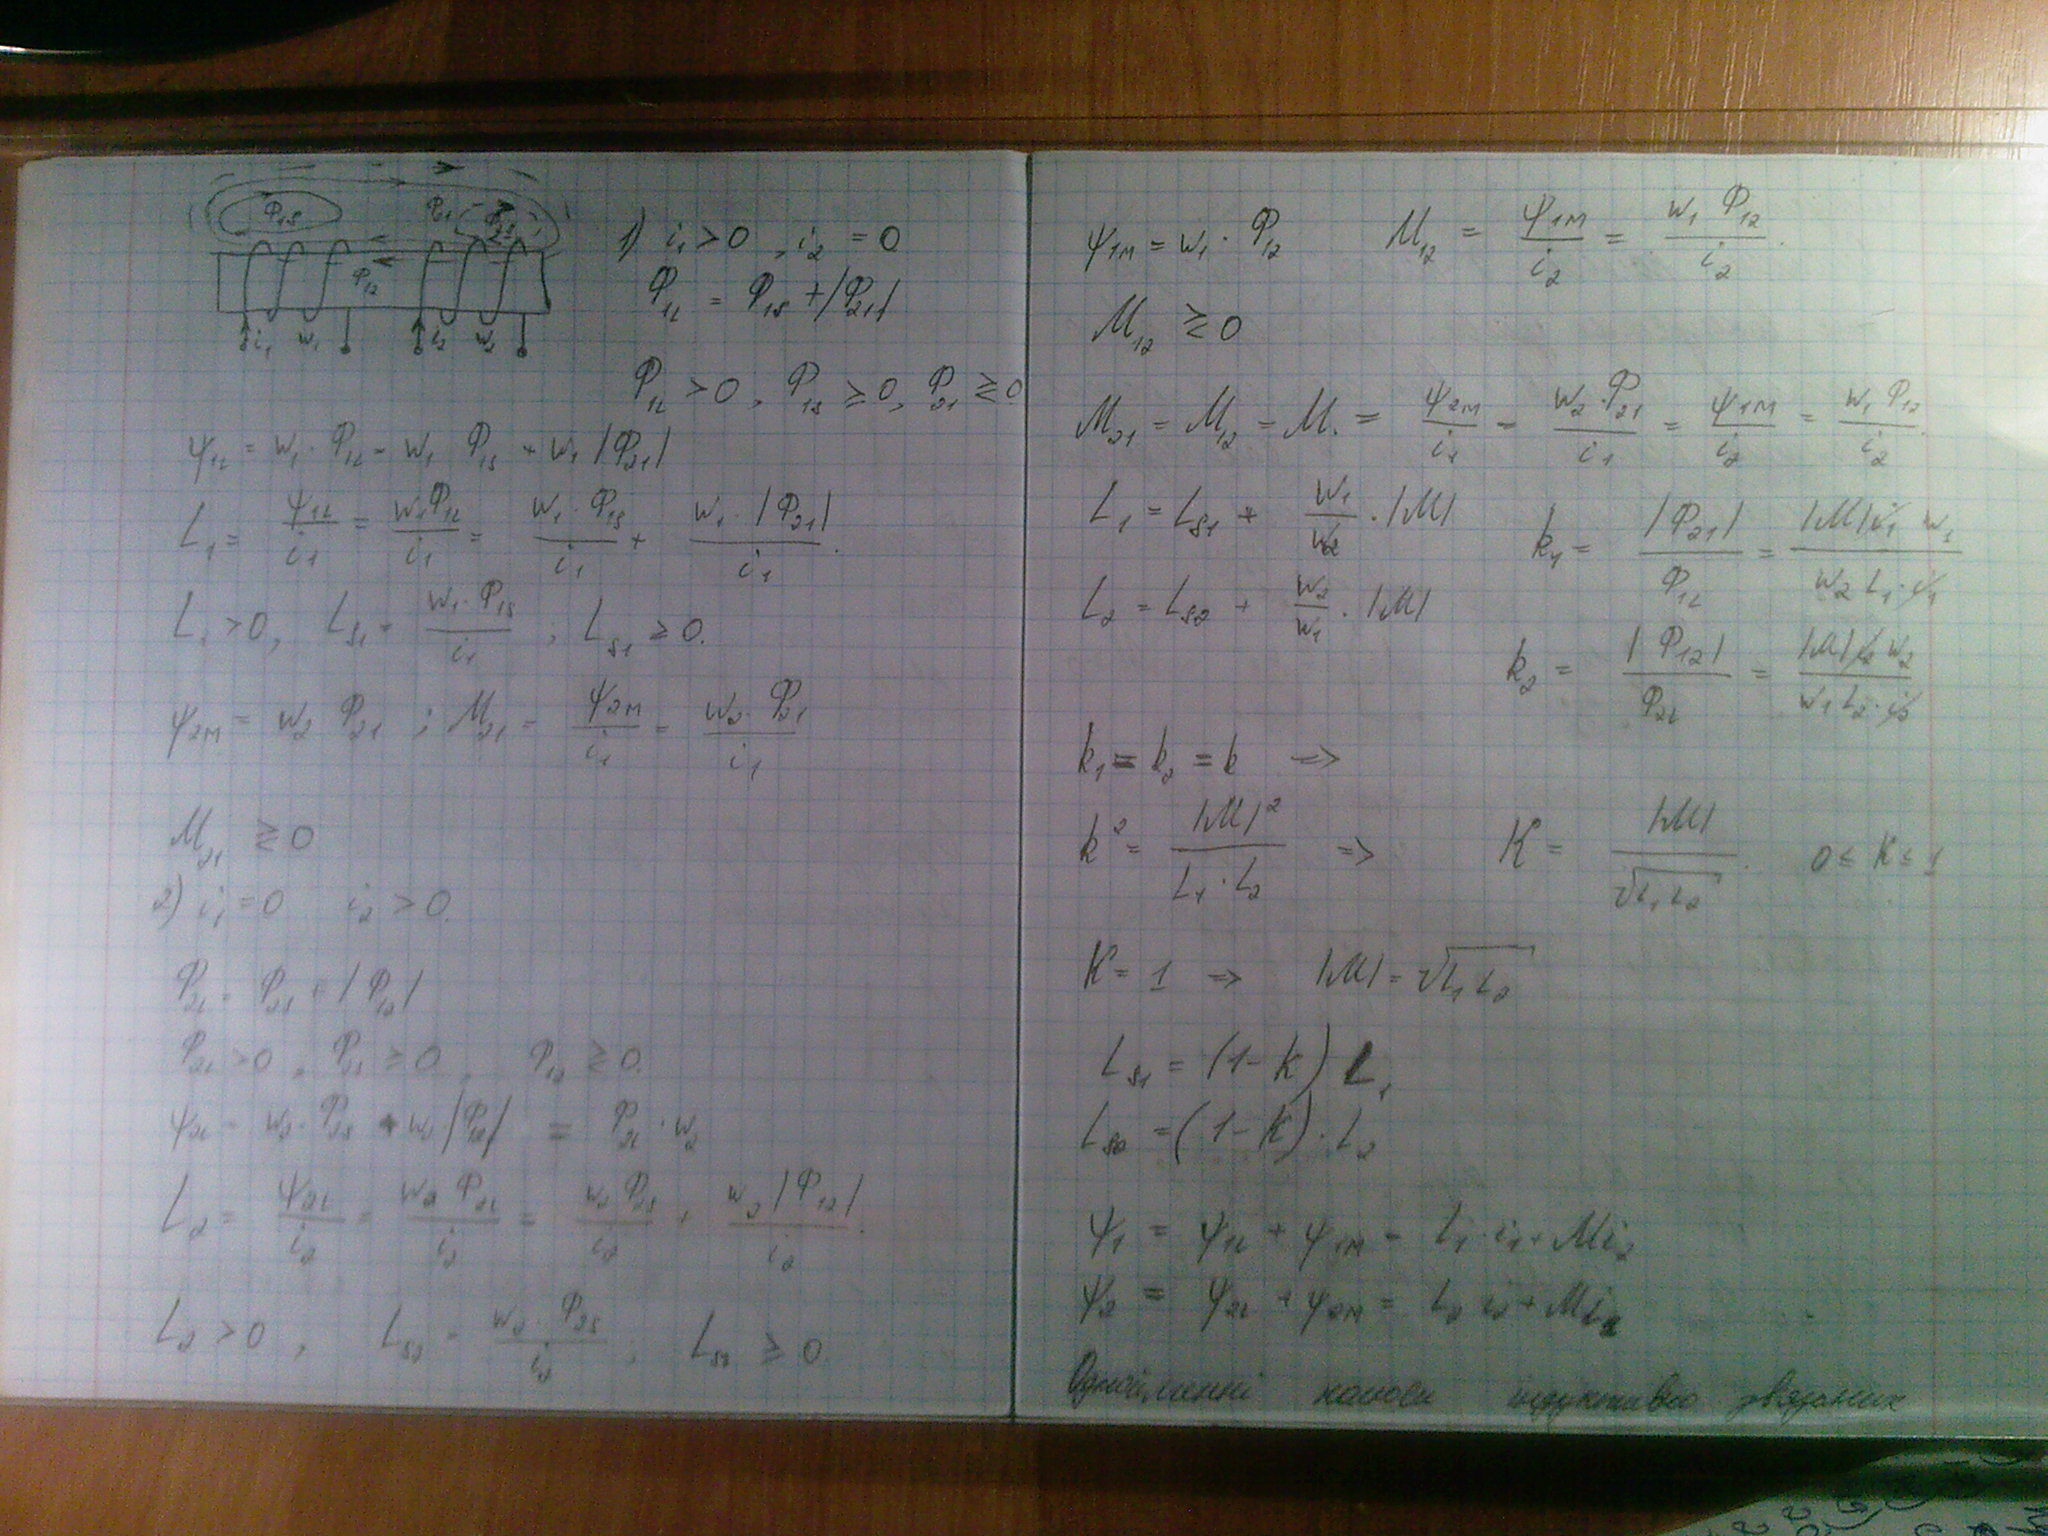 Φ₁ₛ Φ₁ Φ₂ₛ
Φ₁₂
i₁ w₁ i₂ w₂
1) i₁ > 0, i₂ = 0
Φ₁L = Φ₁ₛ + |Φ₂₁|
Φ₁L > 0, Φ₁ₛ ≥ 0, Φ₂₁ ⪌ 0
ψ₁L = w₁ · Φ₁L = w₁ Φ₁ₛ + w₁ |Φ₂₁|
L₁ = ψ₁L / i₁ = w₁Φ₁L / i₁ = w₁ · Φ₁ₛ / i₁ + w₁ · |Φ₂₁| / i₁.
L₁ > 0, Lₛ₁ = w₁ · Φ₁ₛ / i₁ ; Lₛ₁ ≥ 0.
ψ₂м = w₂ Φ₂₁ ; M₂₁ = ψ₂м / i₁ = w₂ · Φ₂₁ / i₁
M₂₁ ⪌ 0
2) i₁ = 0 i₂ > 0.
Φ₂L = Φ₂ₛ + |Φ₁₂|
Φ₂L > 0, Φ₂ₛ ≥ 0, Φ₁₂ ⪌ 0.
ψ₂L = w₂ · Φ₂ₛ + w₂ · |Φ₁₂| = Φ₂L · w₂
L₂ = ψ₂L / i₂ = w₂ Φ₂L / i₂ = w₂ Φ₂ₛ / i₂ + w₂ |Φ₁₂| / i₂.
L₂ > 0, Lₛ₂ = w₂ · Φ₂ₛ / i₂ ; Lₛ₂ ≥ 0.
ψ₁м = w₁ · Φ₁₂ M₁₂ = ψ₁м / i₂ = w₁ Φ₁₂ / i₂.
M₁₂ ⪌ 0
M₂₁ = M₁₂ = M. = ψ₂м / i₁ = w₂ · Φ₂₁ / i₁ = ψ₁м / i₂ = w₁ Φ₁₂ / i₂.
L₁ = Lₛ₁ + w₁ / w₂ · |M|
k₁ = |Φ₂₁| / Φ₁L = |M| i₁ w₁ / w₂ L₁ · i₁
L₂ = Lₛ₂ + w₂ / w₁ · |M|
k₂ = |Φ₁₂| / Φ₂L = |M| i₂ w₂ / w₁ L₂ · i₂
k₁ = k₂ = k ⇒
k² = |M|² / L₁ · L₂ ⇒ K = |M| / √L₁L₂. 0 ≤ K ≤ 1
K = 1 ⇒ |M| = √L₁L₂
Lₛ₁ = (1 - K) L₁
Lₛ₂ = (1 - K) · L₂
ψ₁ = ψ₁L + ψ₁м = L₁ · i₁ + Mi₂
ψ₂ = ψ₂L + ψ₂м = L₂ i₂ + Mi
Однойменні полюси індуктивно звязаних